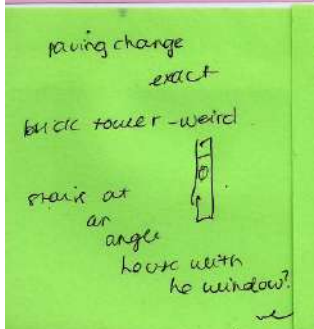 paving change
exact
brick tower - weird
stairs at
an
angle
house with
no window?